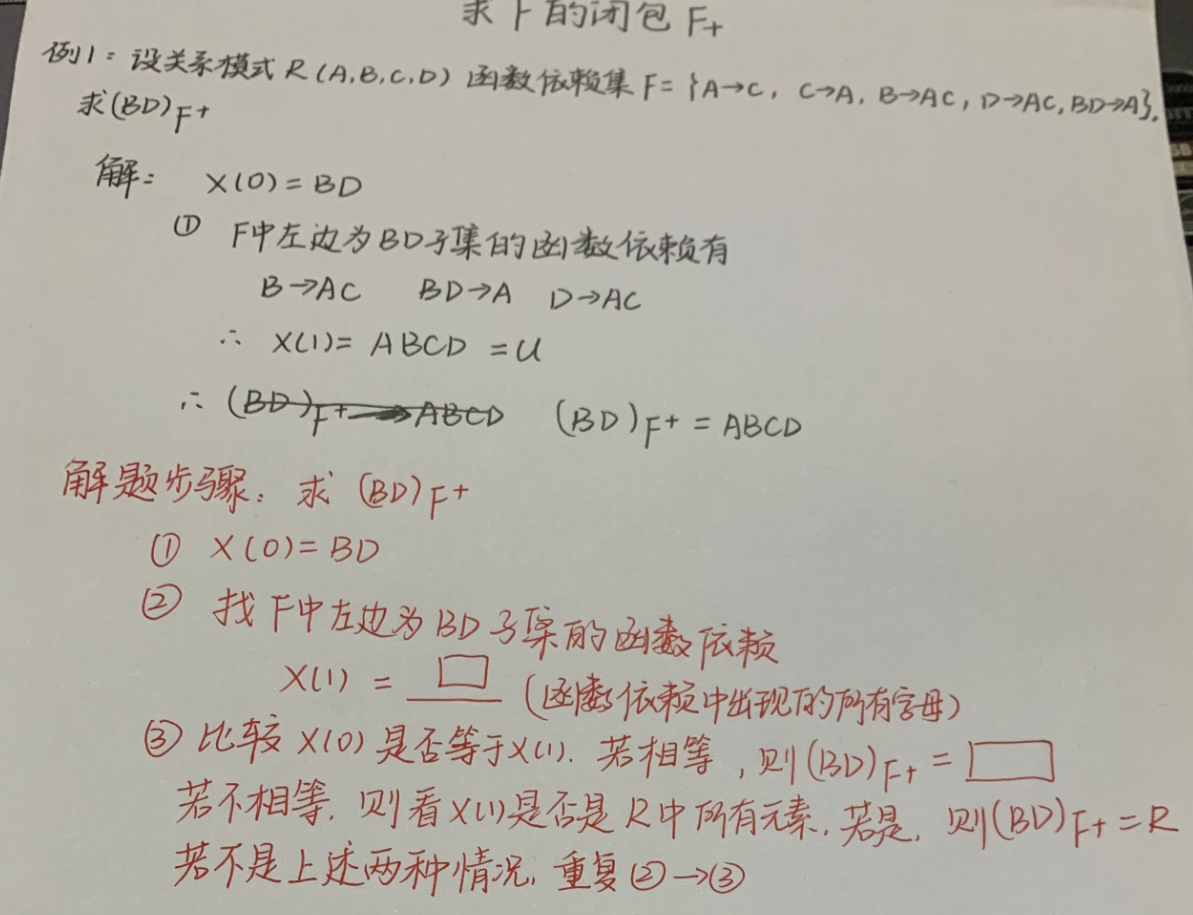 求F的闭包 F+
例1：设关系模式 R(A,B,C,D) 函数依赖集 F={A→C, C→A, B→AC, D→AC, BD→A}.
求(BD)F+
解： X(0)=BD
① F中左边为BD子集的函数依赖有
B→AC BD→A D→AC
∴ X(1)= ABCD =U
∴ (BD)F+→ABCD (BD)F+ = ABCD
解题步骤：求 (BD)F+
① X(0)=BD
② 找F中左边为BD子集的函数依赖
X(1) = □ (函数依赖中出现的所有字母)
③ 比较X(0)是否等于X(1). 若相等，则(BD)F+ = □
若不相等. 则看X(1)是否是R中所有元素. 若是. 则(BD)F+ = R
若不是上述两种情况, 重复②→③